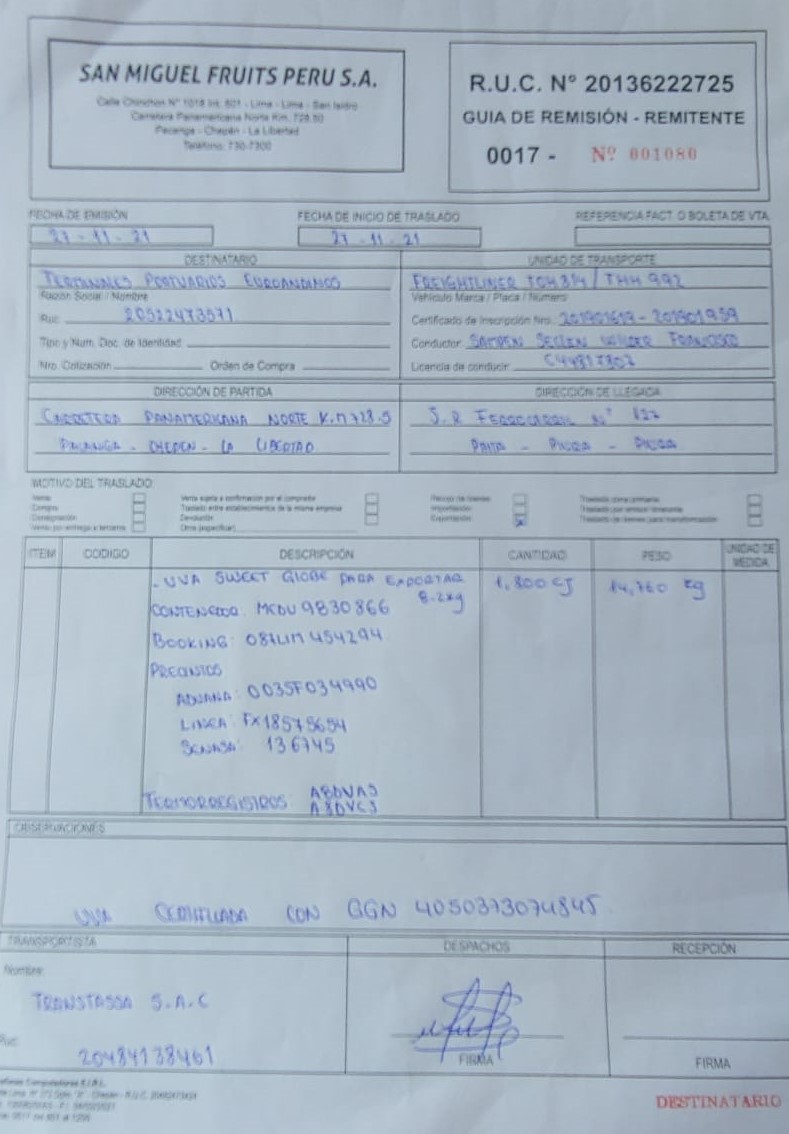 SAN MIGUEL FRUITS PERU S.A.
Calle Chinchon N° 1018 Int. 601 - Lima - Lima - San Isidro
Carretera Panamericana Norte Km. 728.50
Pacanga - Chepén - La Libertad
Teléfono: 730-7300
R.U.C. N° 20136222725
GUIA DE REMISIÓN - REMITENTE
0017 - Nº 001080
FECHA DE EMISIÓN
27 - 11 - 21
FECHA DE INICIO DE TRASLADO
27 - 11 - 21
REFERENCIA FACT. O BOLETA DE VTA.
DESTINATARIO
TERMINALES PORTUARIOS EUROANDINOS
Razón Social / Nombre
Ruc 20522473571
Tipo y Num. Doc. de Identidad
Nro. Cotización Orden de Compra
UNIDAD DE TRANSPORTE
FREIGHTLINER / THH 992
Vehículo Marca / Placa / Número
Certificado de Inscripción Nro.: 201901619 - 201901959
Conductor FRANCISCO
Licencia de conducir
DIRECCIÓN DE PARTIDA
CARRETERA PANAMERICANA NORTE K.M 728.5
PACANGA - CHEPEN - LA LIBERTAD
DIRECCIÓN DE LLEGADA
J.R FERROCARRIL N° 127
PAITA - PIURA - PIURA
MOTIVO DEL TRASLADO:
Venta
Compra
Consignación
Venta con entrega a terceros
Venta sujeta a confirmación por el comprador
Traslado entre establecimientos de la misma empresa
Devolución
Otros (especificar)
Recojo de bienes
Importación
Exportación X
Traslado zona primaria
Traslado por emisor itinerante
Traslado de bienes para transformación
ITEM CODIGO DESCRIPCIÓN CANTIDAD PESO UNIDAD DE MEDIDA
- UVA SWEET GLOBE PARA EXPORTAR 1,800 CJ 14,760 Kg
8.2Kg
CONTENEDOR: MEDU 9830866
BOOKING: 087LIM 454294
PRECINTOS
ADUANA: 0035F034990
LINEA: FX18575654
SENASA: 136745
TERMORREGISTROS: A8DVAS
A8DVCJ
OBSERVACIONES
UVA CERTIFICADA CON GGN 4050373074845
TRANSPORTISTA
Nombre:
TRANSTASSA S.A.C
Ruc:
20484138461
DESPACHOS
FIRMA
RECEPCIÓN
FIRMA
DESTINATARIO